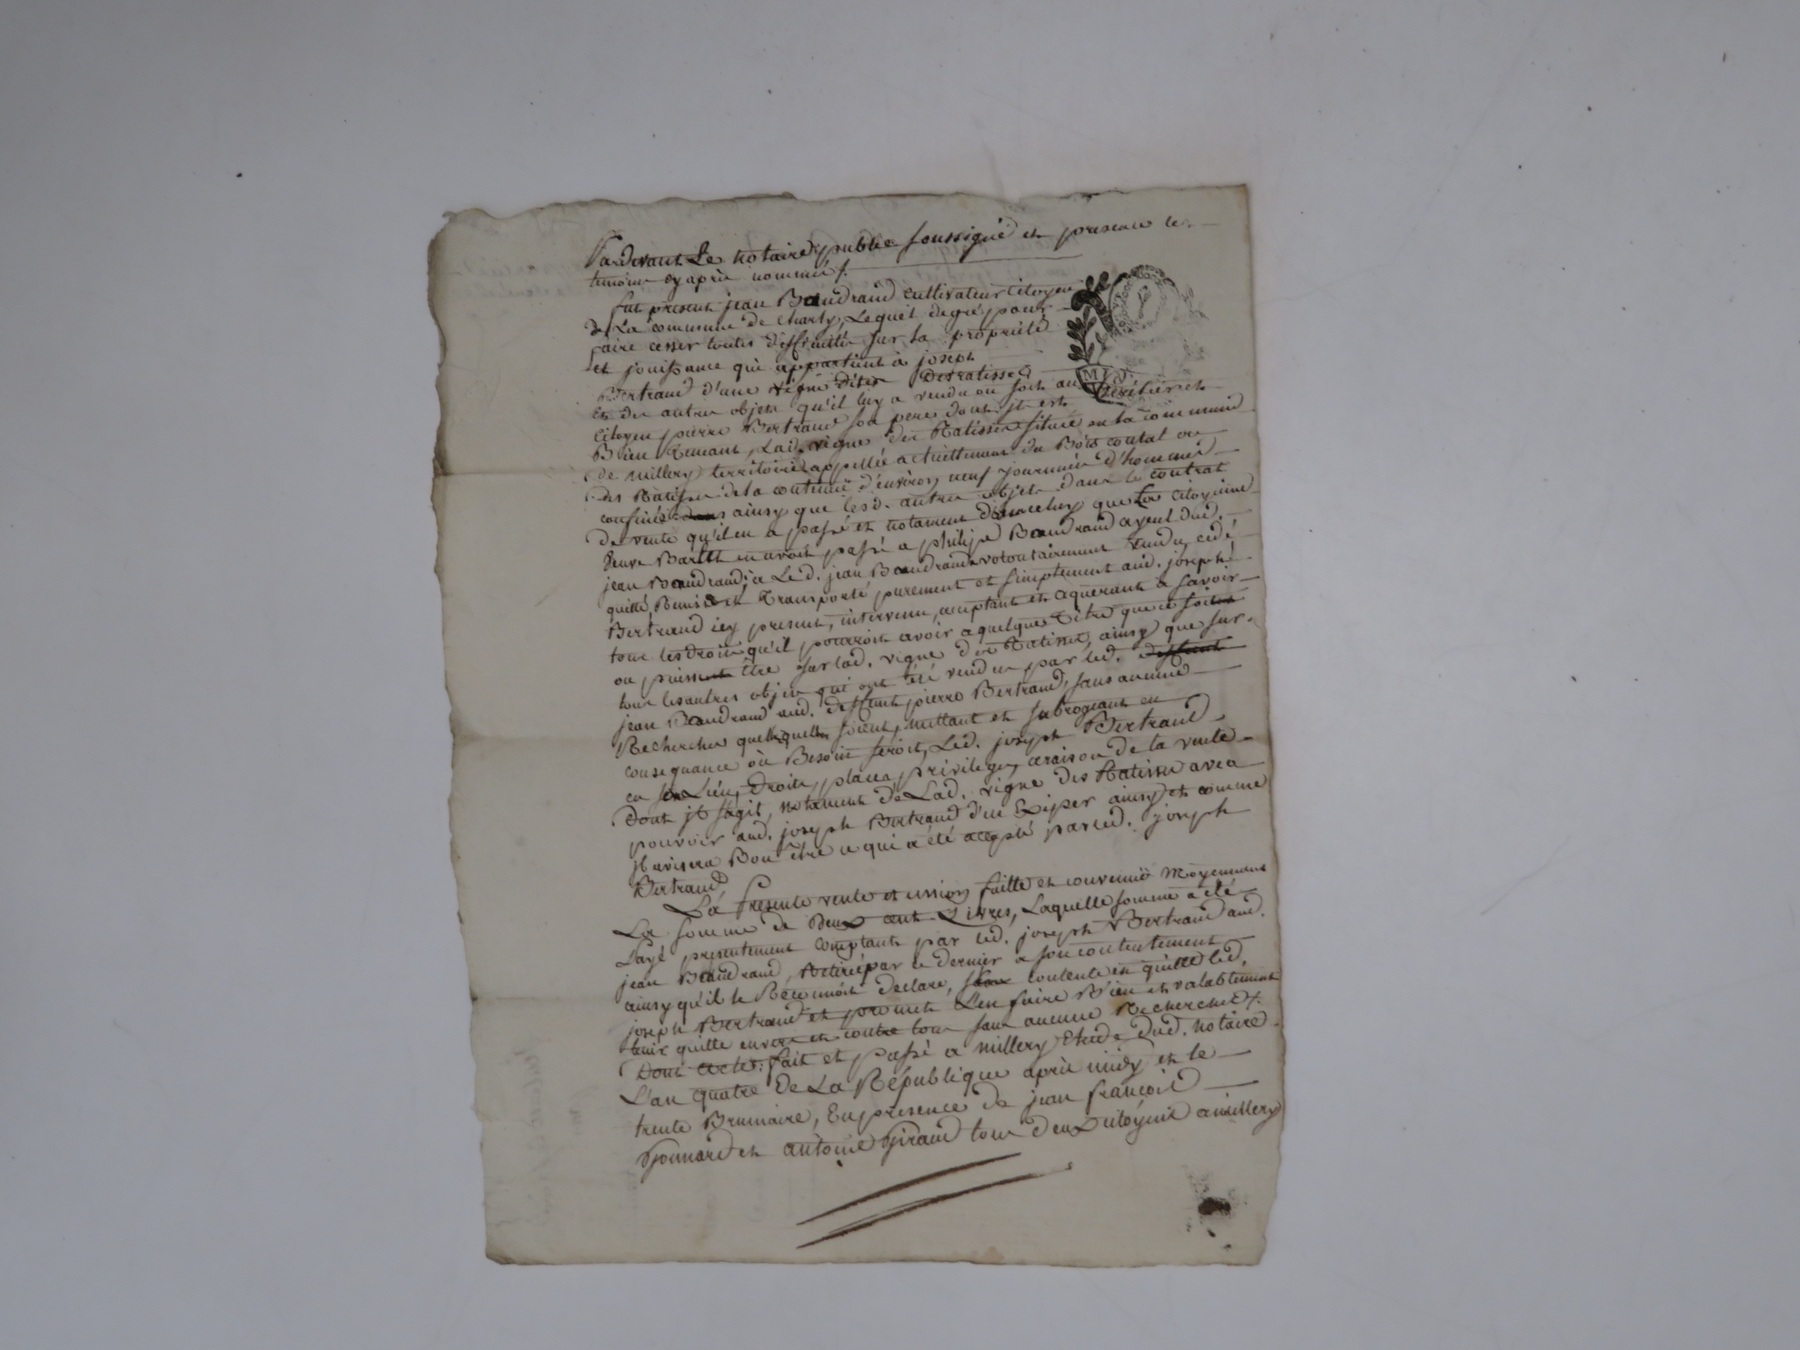 Pardevant Le notaire public soussigné et presence les
temoins cy après nommés
fut present jean Baudrand cultivateur citoyen
de La commune de Charly, Lequel de gré pour
faire cesser toutes difficultés sur la propriété
et jouissance qui appartient à joseph
Bertrand d'une vigne dites des ratisses
et des autres objets qu'il luy a vendu ou soit au
citoyen pierre Bertrand son pere dont jl est héritier et
Bien tenant, Lad. vigne des Ratisses située en la commune
de millery territoire appellée actuellement du Bois contal ou
des Ratisses de la contenüe d'environ neuf journées d'hommes
confinée ainsy que lesd. autres objets dans le contrat
de vente qu'il en a passé et notament dans celuy que La citoyenne
veuve en avoit passé a philipe Baudrand ayeul dud.
jean Baudrand; a Led. jean Baudrand volontairement vendu, cedé
quitté, Remis et Transporté purement et simplement aud. joseph
Bertrand icy present, intervenu, acceptant et aquerant a savoir
tous les droits qu'il pourroit avoir a quelque titre que ce soit
ou puisse être sur lad. vigne des Ratisses, ainsy que sur
tous les autres objets qui ont été vendus par led. deffunt
jean Baudrand aud. deffunt pierre Bertrand, sans aucune
Recherches quelquelles soient, mettant et subrogeant en
consequance où Besoin seroit, Led. joseph Bertrand
en ses Lieu, droits, place, privilege, a raison de la vente
Dont jl s'agit, notament de Lad. vigne des Ratisses avec
pouvoir aud. joseph Bertrand d'en Exiper ainsy et comme
jl avisera Bon être ce qui a été accepté par led. joseph
Bertrand,
La presente vente et cession faitte et convenüe moyennant
La somme de deux cent Livres, Laquelle somme a été
payé presentement comptant par led. joseph Bertrand aud.
jean Baudrand, Retiré par ce dernier a son contentement
ainsy qu'il le Reconnoit declare, contente en quitte led.
joseph Bertrand et promet L'en faire Bien et valablement
tenir quitte envers et contre tous sans aucune Recherches
Dont acte: fait et passé a millery Etude Dud. notaire
L'an quatre de La République après midy et le
trente Brumaire, En presence de jean françois
Gonnard et antoine Giraud tous deux citoyens a millery